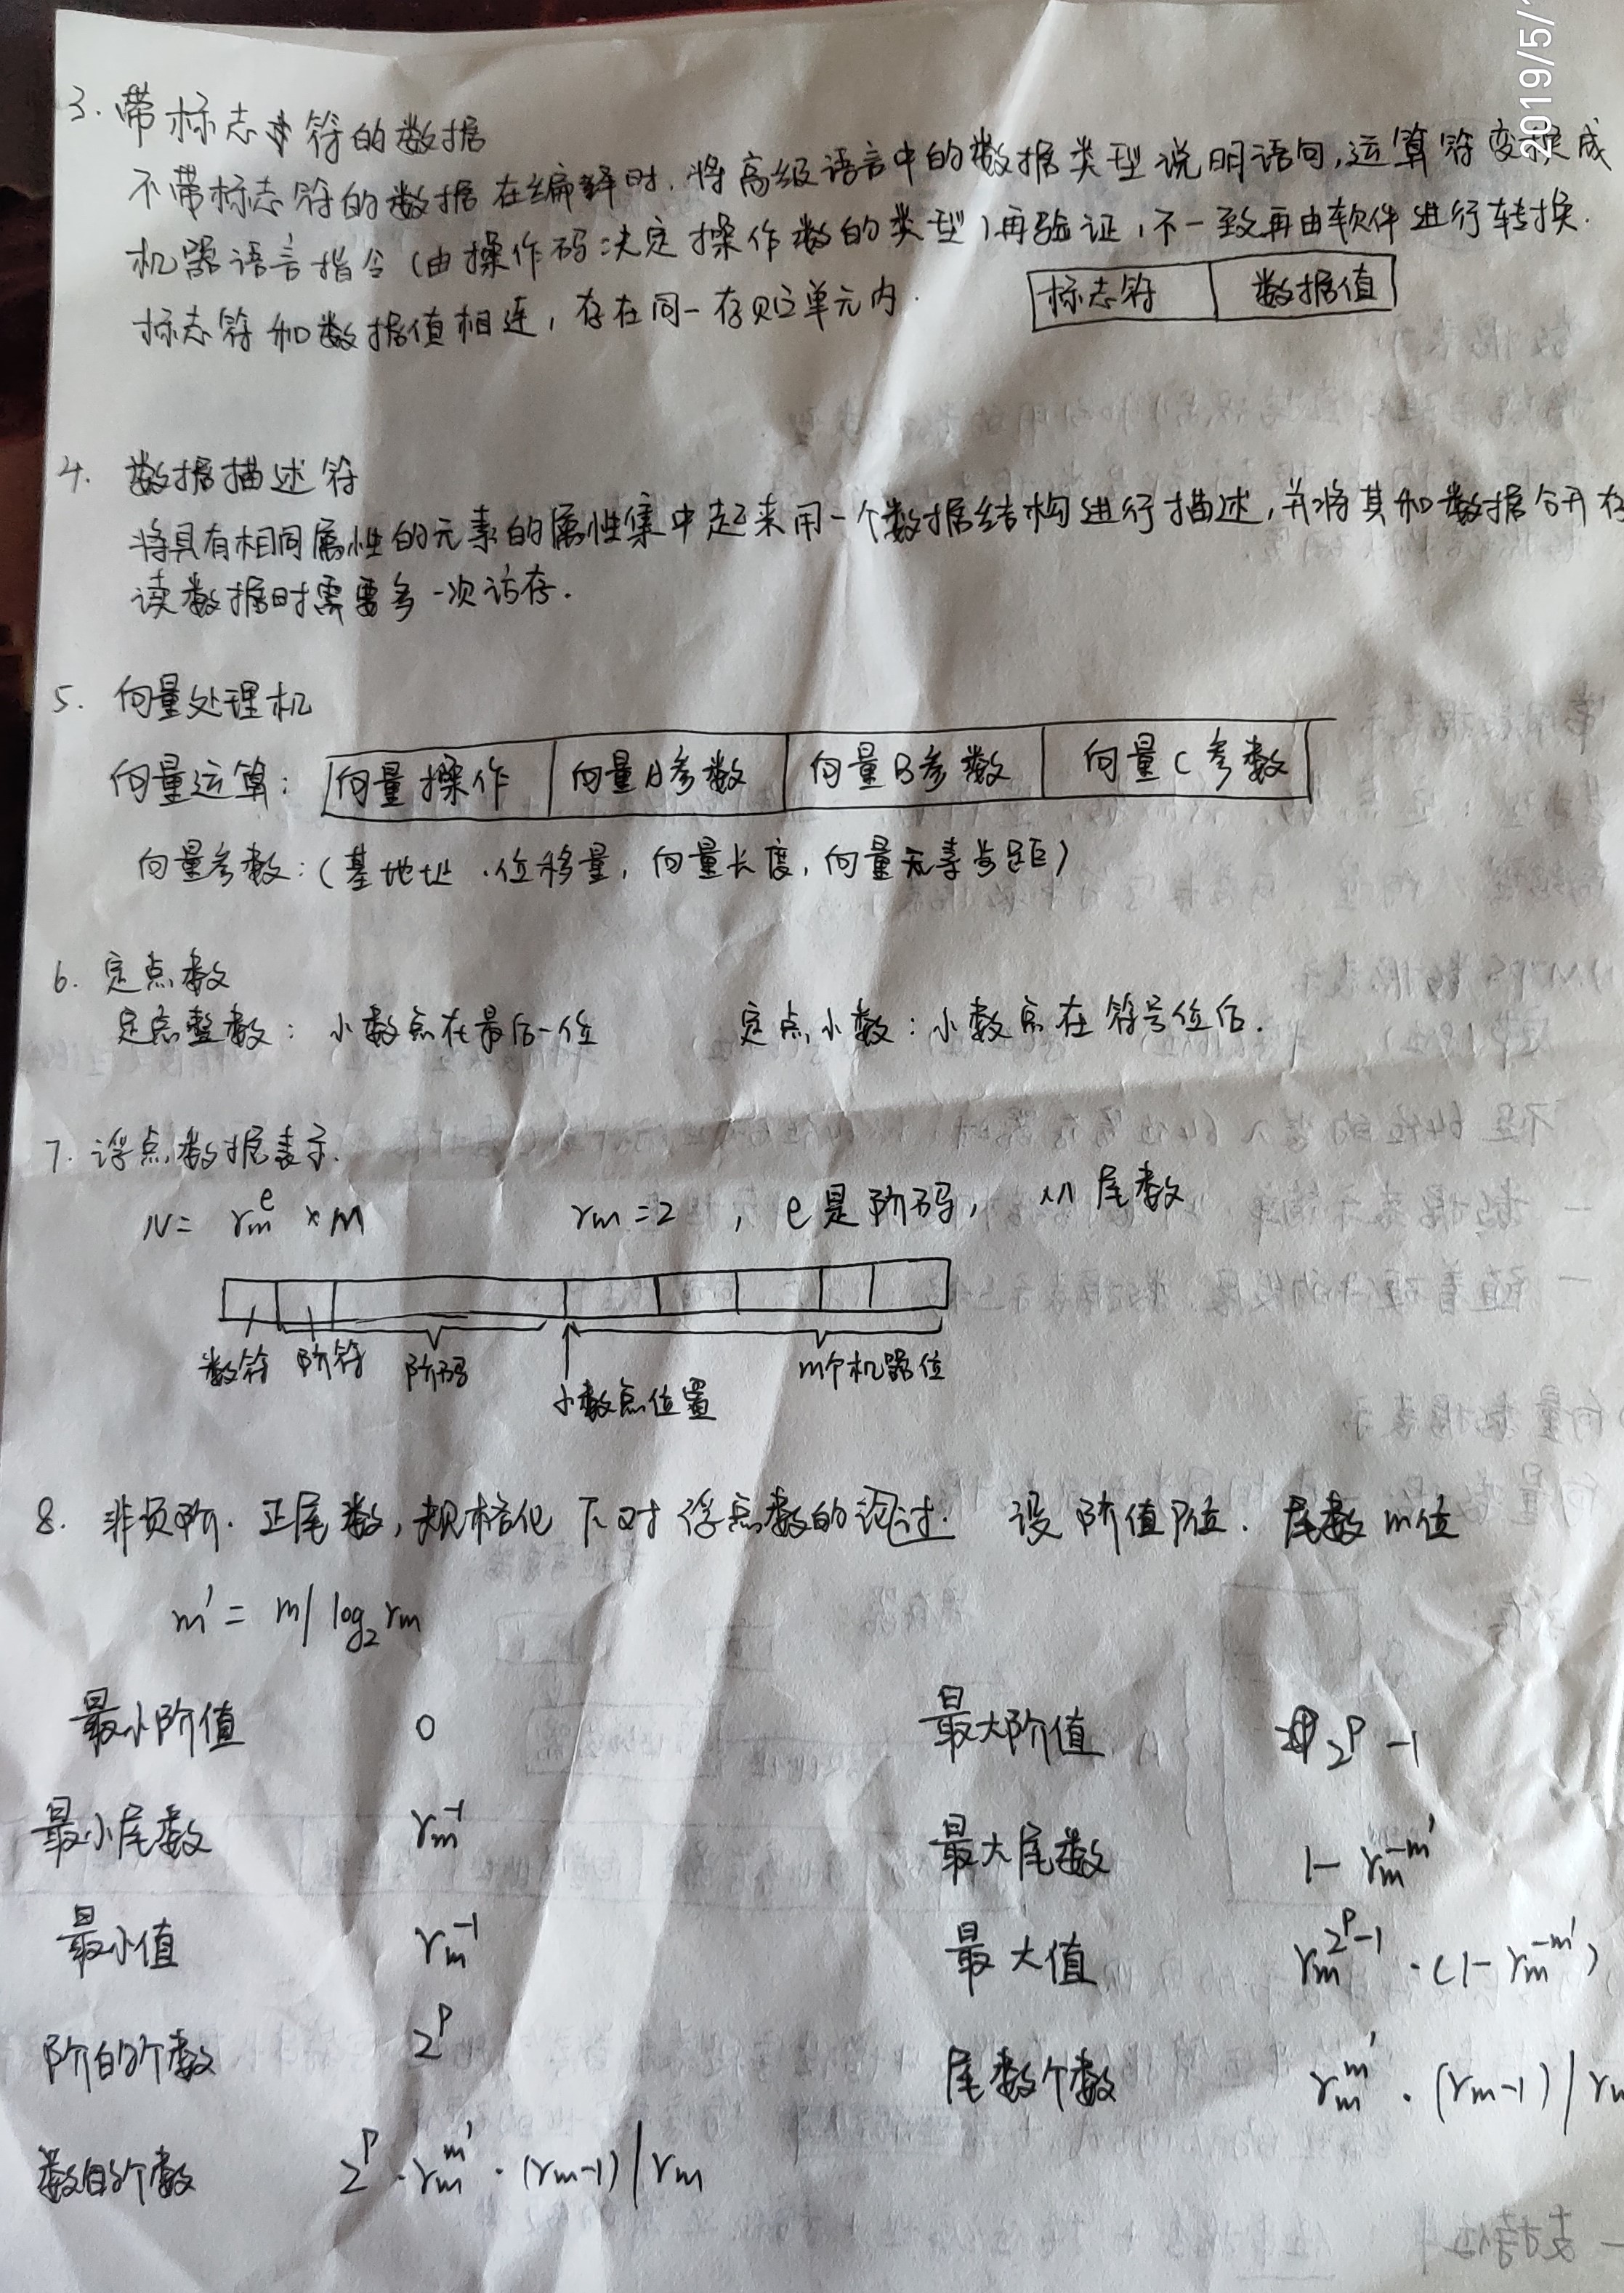 2019/5/
3. 带标志符的数据
不带标志符的数据在编译时,将高级语言中的数据类型说明语句,运算符变换成
机器语言指令(由操作码决定操作数的类型)再验证,不一致再由软件进行转换.
标志符和数据值相连,存在同一存贮单元内. 标志符 数据值
4. 数据描述符
将具有相同属性的元素的属性集中起来用一个数据结构进行描述,并将其和数据分开存
读数据时需要多一次访存.
5. 向量处理机
向量运算: 向量操作 向量A参数 向量B参数 向量C参数
向量参数:(基地址.位移量,向量长度,向量元素步距)
6. 定点数
定点整数: 小数点在最后一位 定点小数:小数点在符号位后.
7. 浮点数据表示.
N = rm^e × M rm=2 , e是阶码, m 尾数
数符 阶符 阶码 小数点位置 m个机器位
8. 非负阶.正尾数,规格化下对浮点数的讨论. 设阶值P位.尾数m位
m' = m/log₂rm
最小阶值 0 最大阶值 2^P -1
最小尾数 rm^-1 最大尾数 1- rm^-m'
最小值 rm^-1 最大值 rm^2^P-1 ·(1- rm^-m')
阶的个数 2^P 尾数个数 rm^m' · (rm-1)/rm
数的个数 2^P · rm^m' · (rm-1)/rm